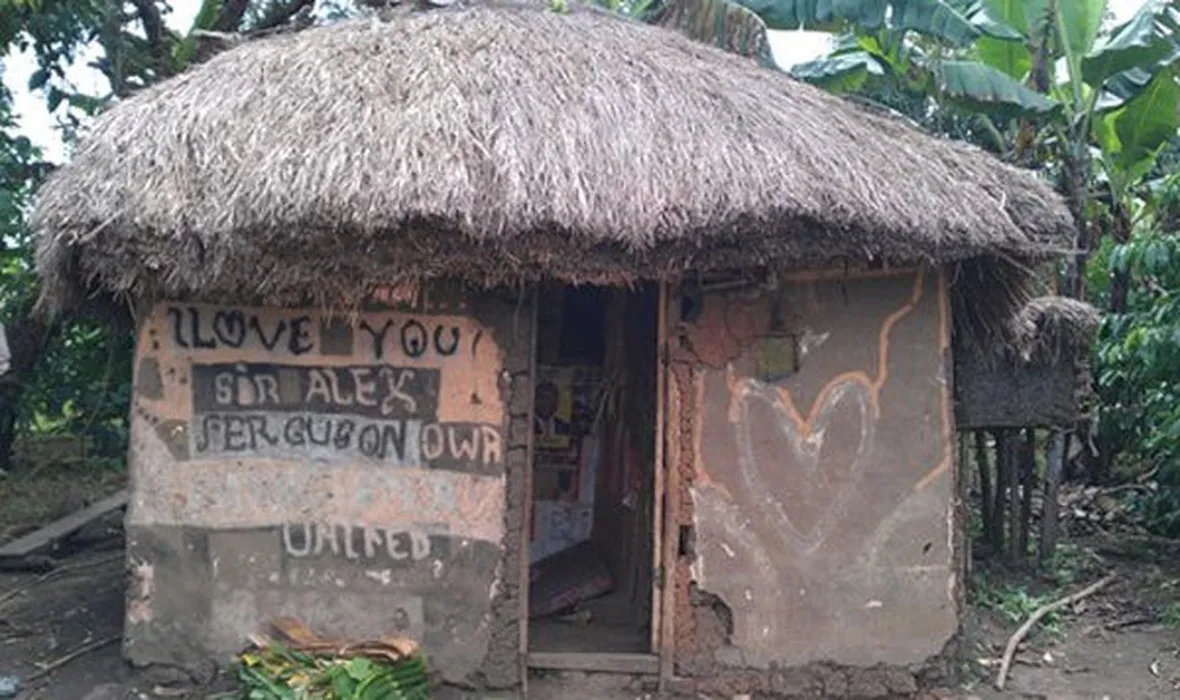 I LOVE YOU
SIR ALEX
FERGUSON OWA
UNITED